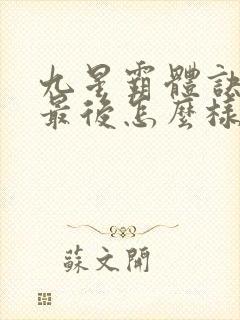 九星霸體訣
最後怎麼樣
蘇文開